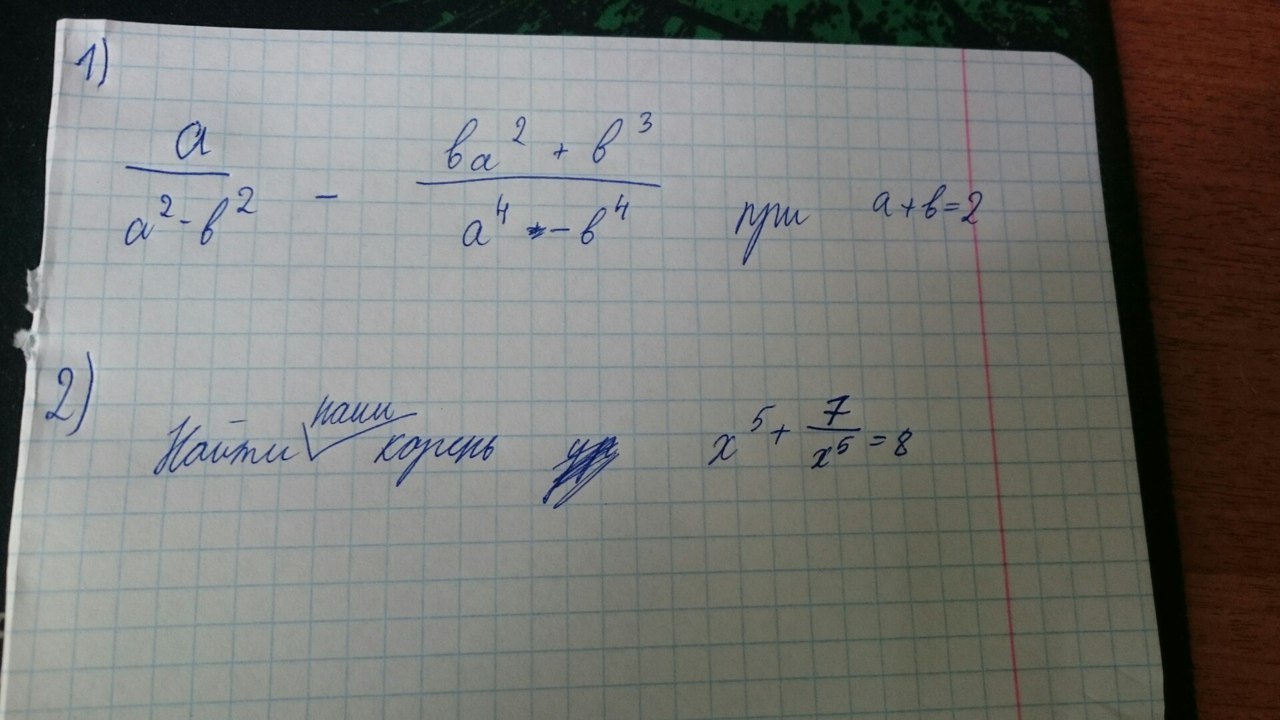 1)
a / (a² - b²) - (ba² + b³) / (a⁴ - b⁴) при a+b=2
2)
Найти наим корень x⁵ + 7/x⁵ = 8